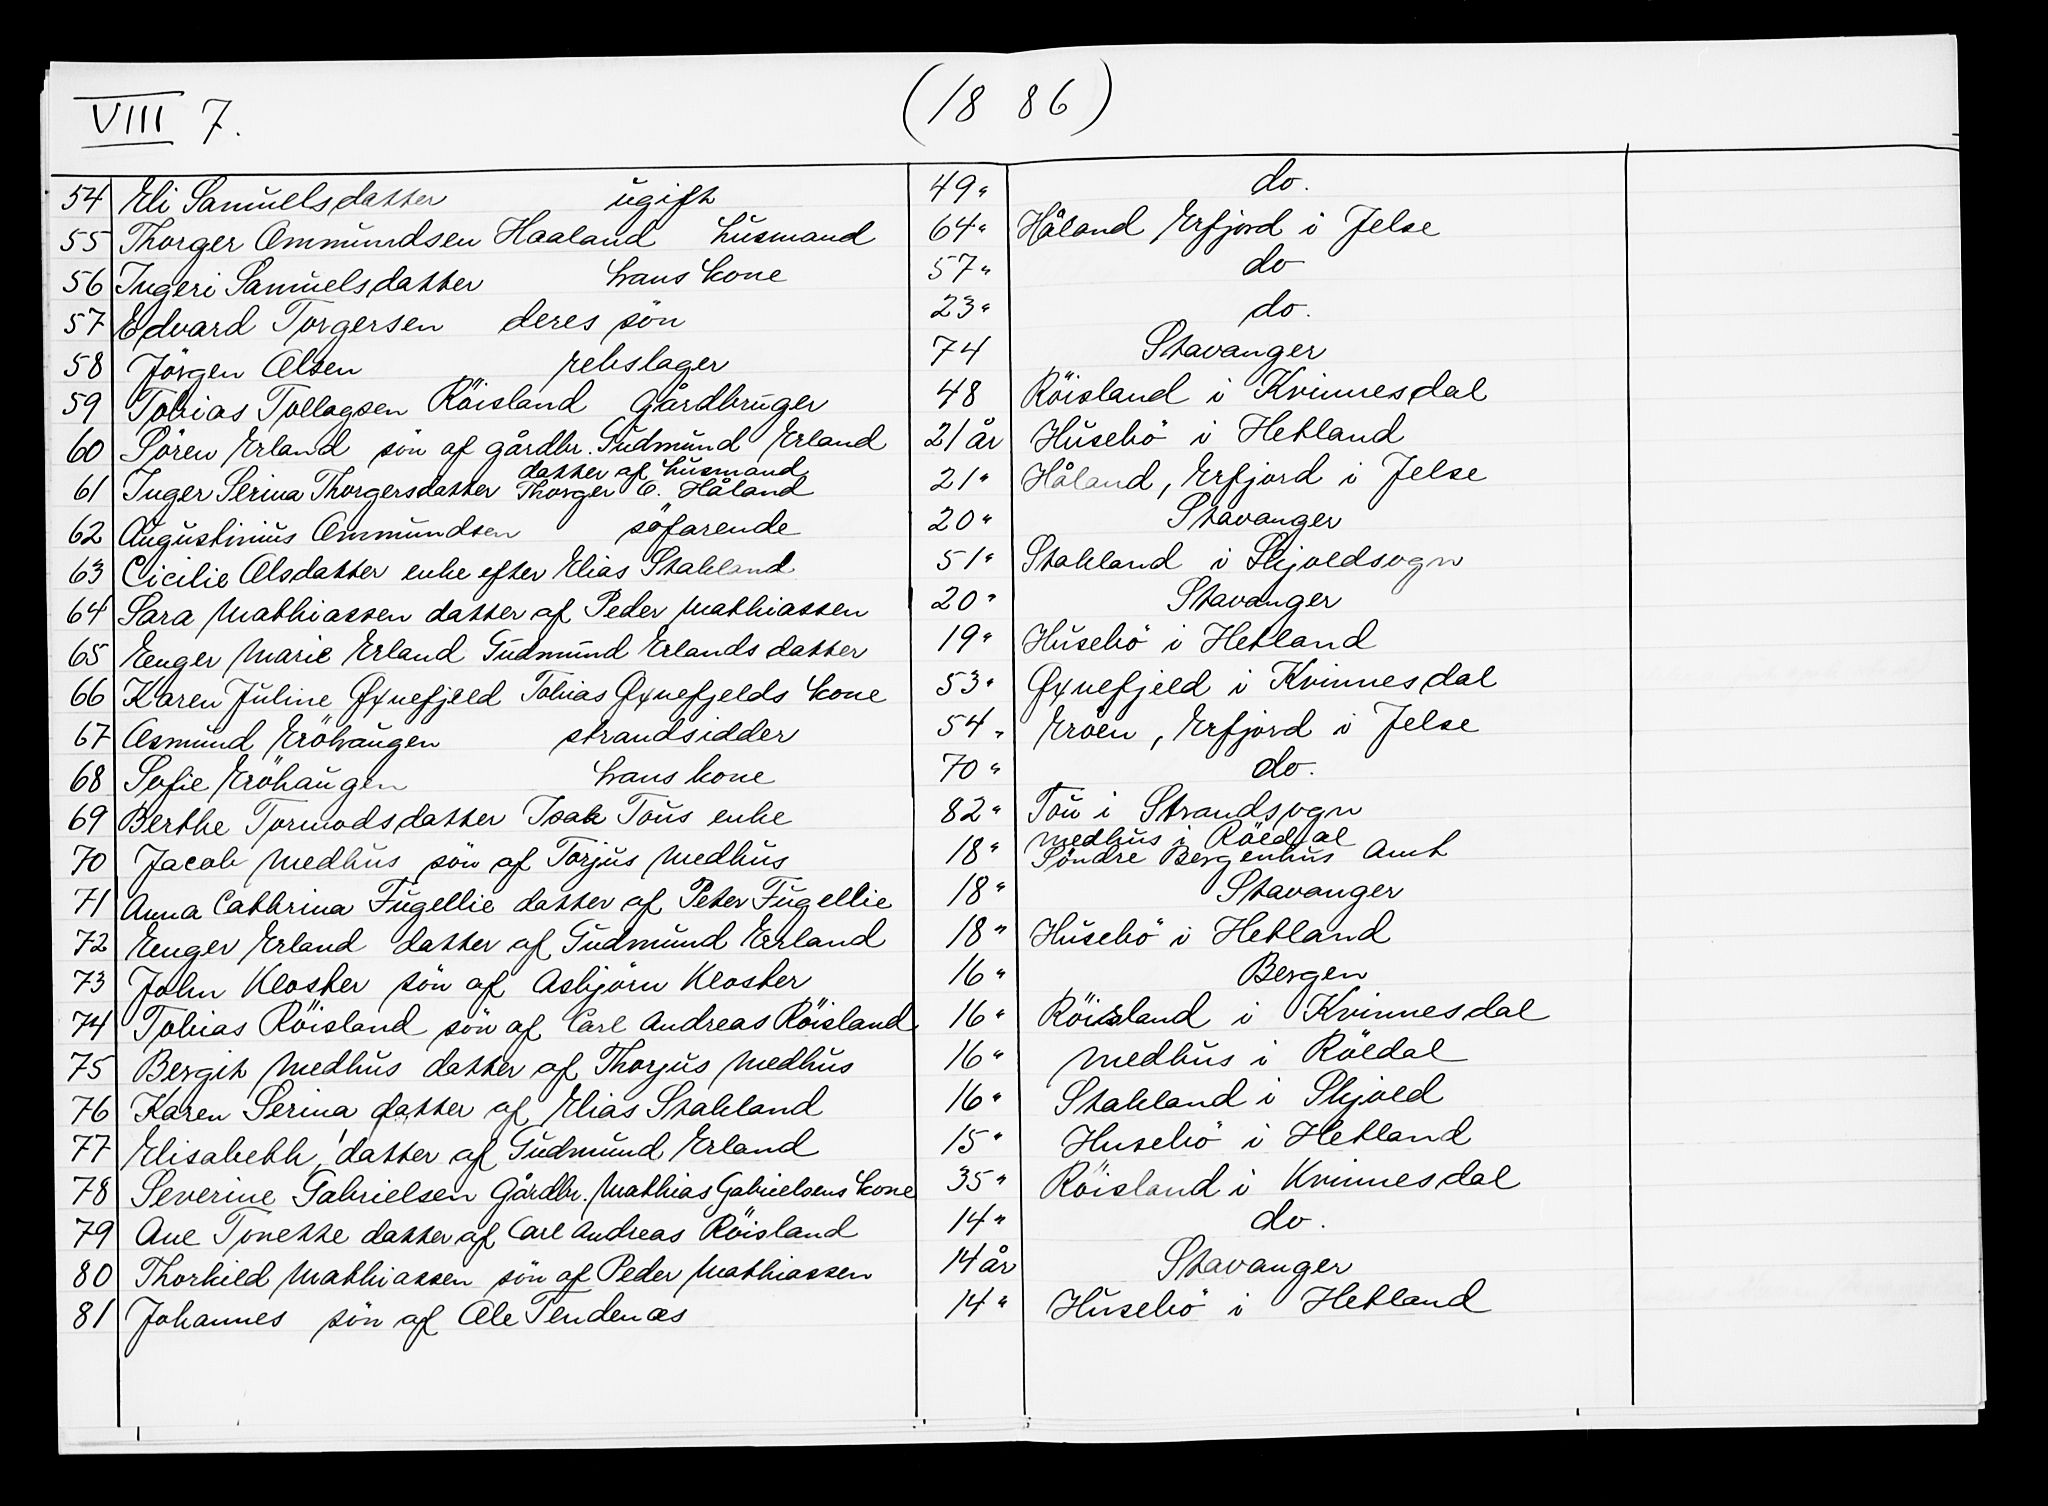 VIII 7. (1886)
54 Eli Samuelsdatter ugift 49 " do.
55 Thorger Ommundsen Haaland husmand 64 " Håland Erfjord i Jelse
56 Ingeri Samuelsdatter hans kone 57 " do
57 Edvard Torgersen deres sön 23 " do.
58 Jörgen Olsen rebslager 74 Stavanger
59 Tobias Tollagsen Röisland gårdbruger 48 Röisland i Kvinnesdal
60 Sören Erland sön af gårdbr. Gudmund Erland 21 år Husebö i Hetland
61 Inger Serina Thorgersdatter datter af husmand Thorger O. Håland 21 " Håland, Erfjord i Jelse
62 Augustinius Ommundsen söfarende 20 " Stavanger
63 Cicilie Olsdatter enke efter Elias Stakland 51 " Stakland i Skjoldsogn
64 Sara Mathiassen datter af Peder Mathiassen 20 " Stavanger
65 Enger Marie Erland Gudmund Erlands datter 19 " Husebö i Hetland
66 Karen Juline Øxnefjeld Tobias Øxnefjelds kone 53 " Øxnefjeld i Kvinnesdal
67 Asmund Eröhaugen strandsidder 54 " Eröen, Erfjord i Jelse
68 Sofie Eröhaugen hans kone 70 " do.
69 Berthe Tormodsdatter Isak Tous enke 82 " Tou i Strandsogn
70 Jacob Medhus sön af Torjus Medhus 18 " Medhus i Röldal Söndre Bergenhus Amt
71 Anna Cathrina Fugellie datter af Peter Fugellie 18 " Stavanger
72 Enger Erland datter af Gudmund Erland 18 " Husebö i Hetland
73 John Kloster sön af Asbjörn Kloster 16 " Bergen
74 Tobias Röisland sön af Carl Andreas Röisland 16 " Röisland i Kvinnesdal
75 Bergit Medhus datter af Thorjus Medhus 16 " Medhus i Röldal
76 Karen Serina datter af Elias Stakland 16 " Stakland i Skjold
77 Elisabeth, datter af Gudmund Erland 15 " Husebö i Hetland
78 Severine Gabrielsen Gårdbr. Mathias Gabrielsens kone 35 " Röisland i Kvinnesdal
79 Ane Tonette datter af Carl Andreas Röisland 14 " do.
80 Thorkild Mathiassen sön af Peder Mathiassen 14 år Stavanger
81 Johannes sön af Ole Tendenæs 14 " Husebö i Hetland